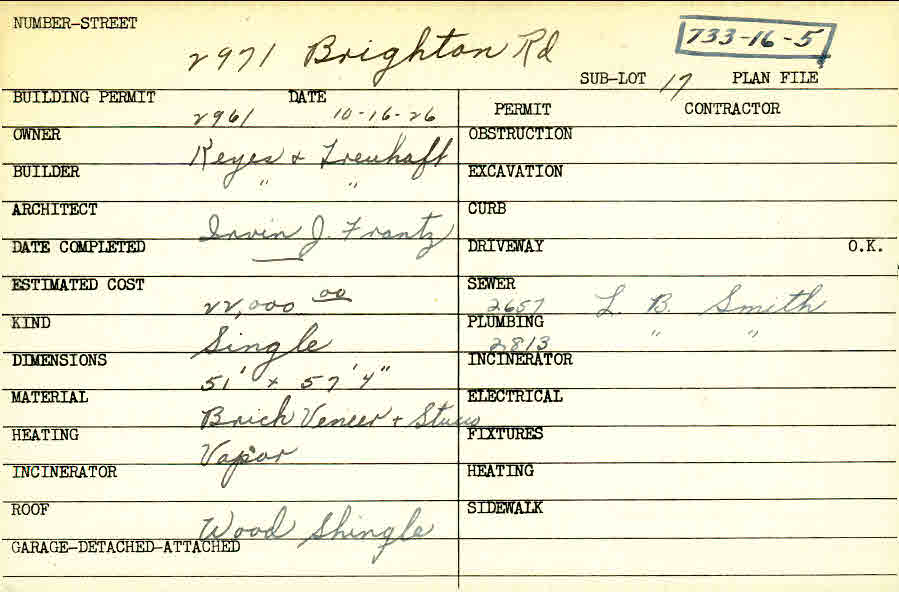 NUMBER-STREET
2971 Brighton Rd
733-16-5
SUB-LOT 17 PLAN FILE
BUILDING PERMIT 2961 DATE 10-16-26
PERMIT CONTRACTOR
OWNER Keyes & Treuhaft
OBSTRUCTION
BUILDER " "
EXCAVATION
ARCHITECT Irvin J. Frantz
CURB
DATE COMPLETED
DRIVEWAY O.K.
ESTIMATED COST 22,000 00
SEWER 2657 L. B. Smith
KIND Single
PLUMBING 2813 " "
DIMENSIONS 51' x 57'4"
INCINERATOR
MATERIAL Brick Veneer + Stucco
ELECTRICAL
HEATING Vapor
FIXTURES
INCINERATOR
HEATING
ROOF Wood Shingle
SIDEWALK
GARAGE-DETACHED-ATTACHED